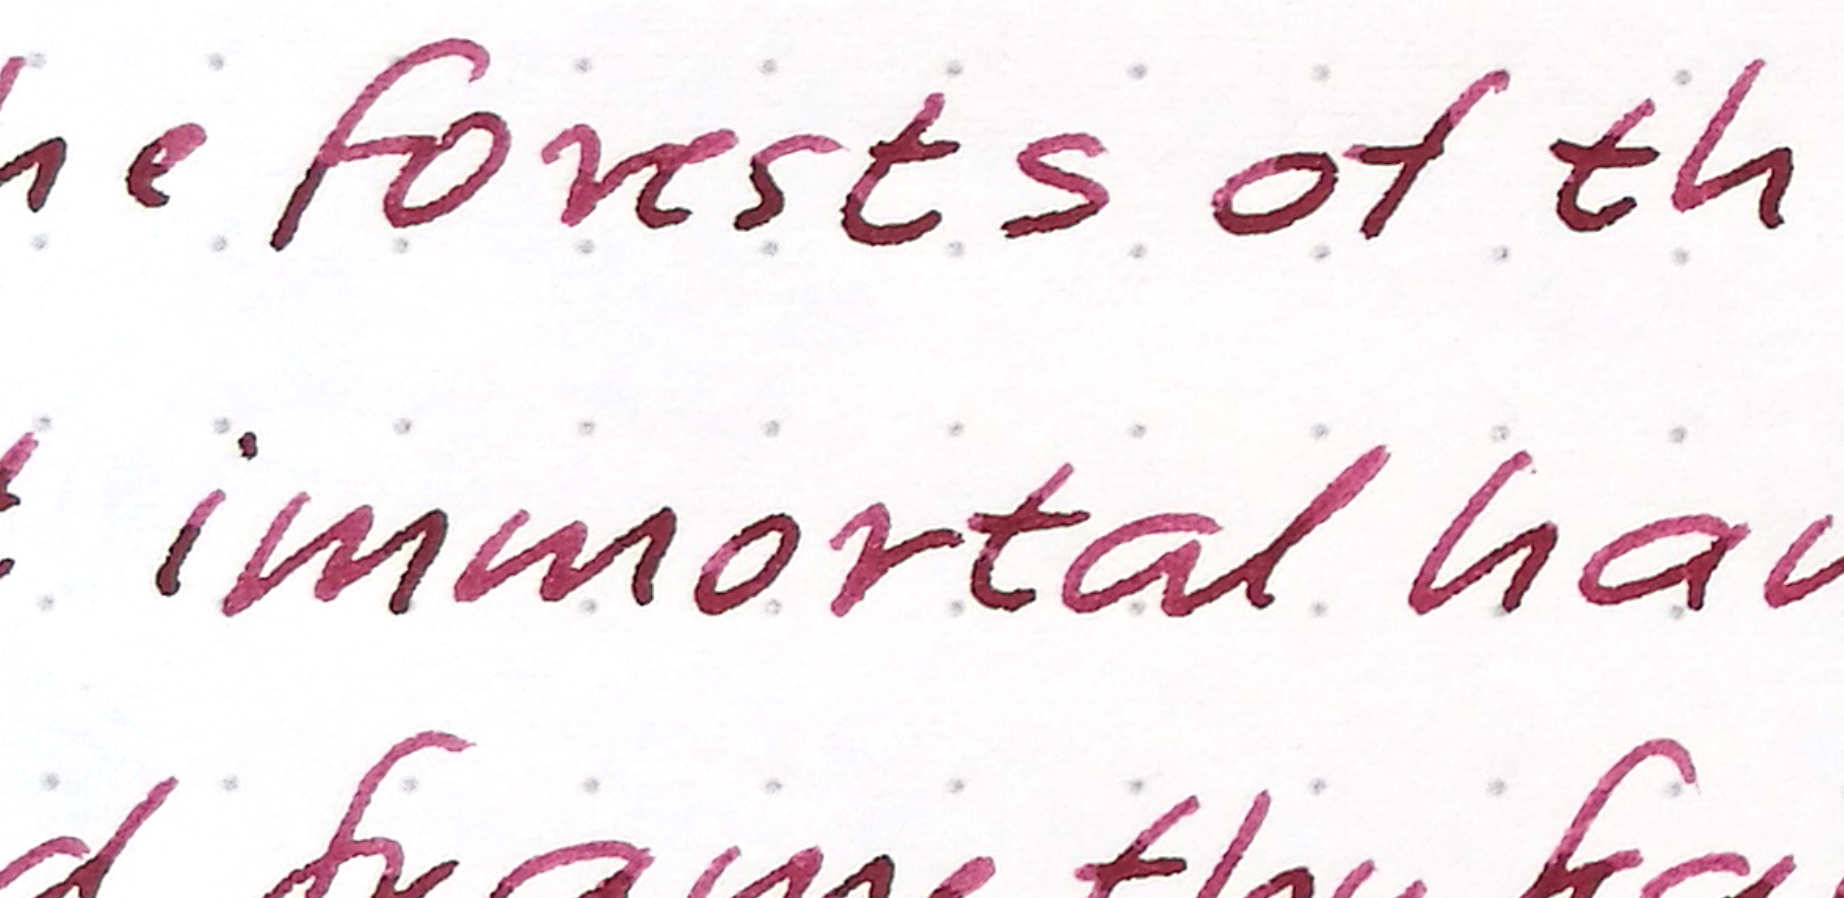 he forests of th
t immortal han
d frame thy fea